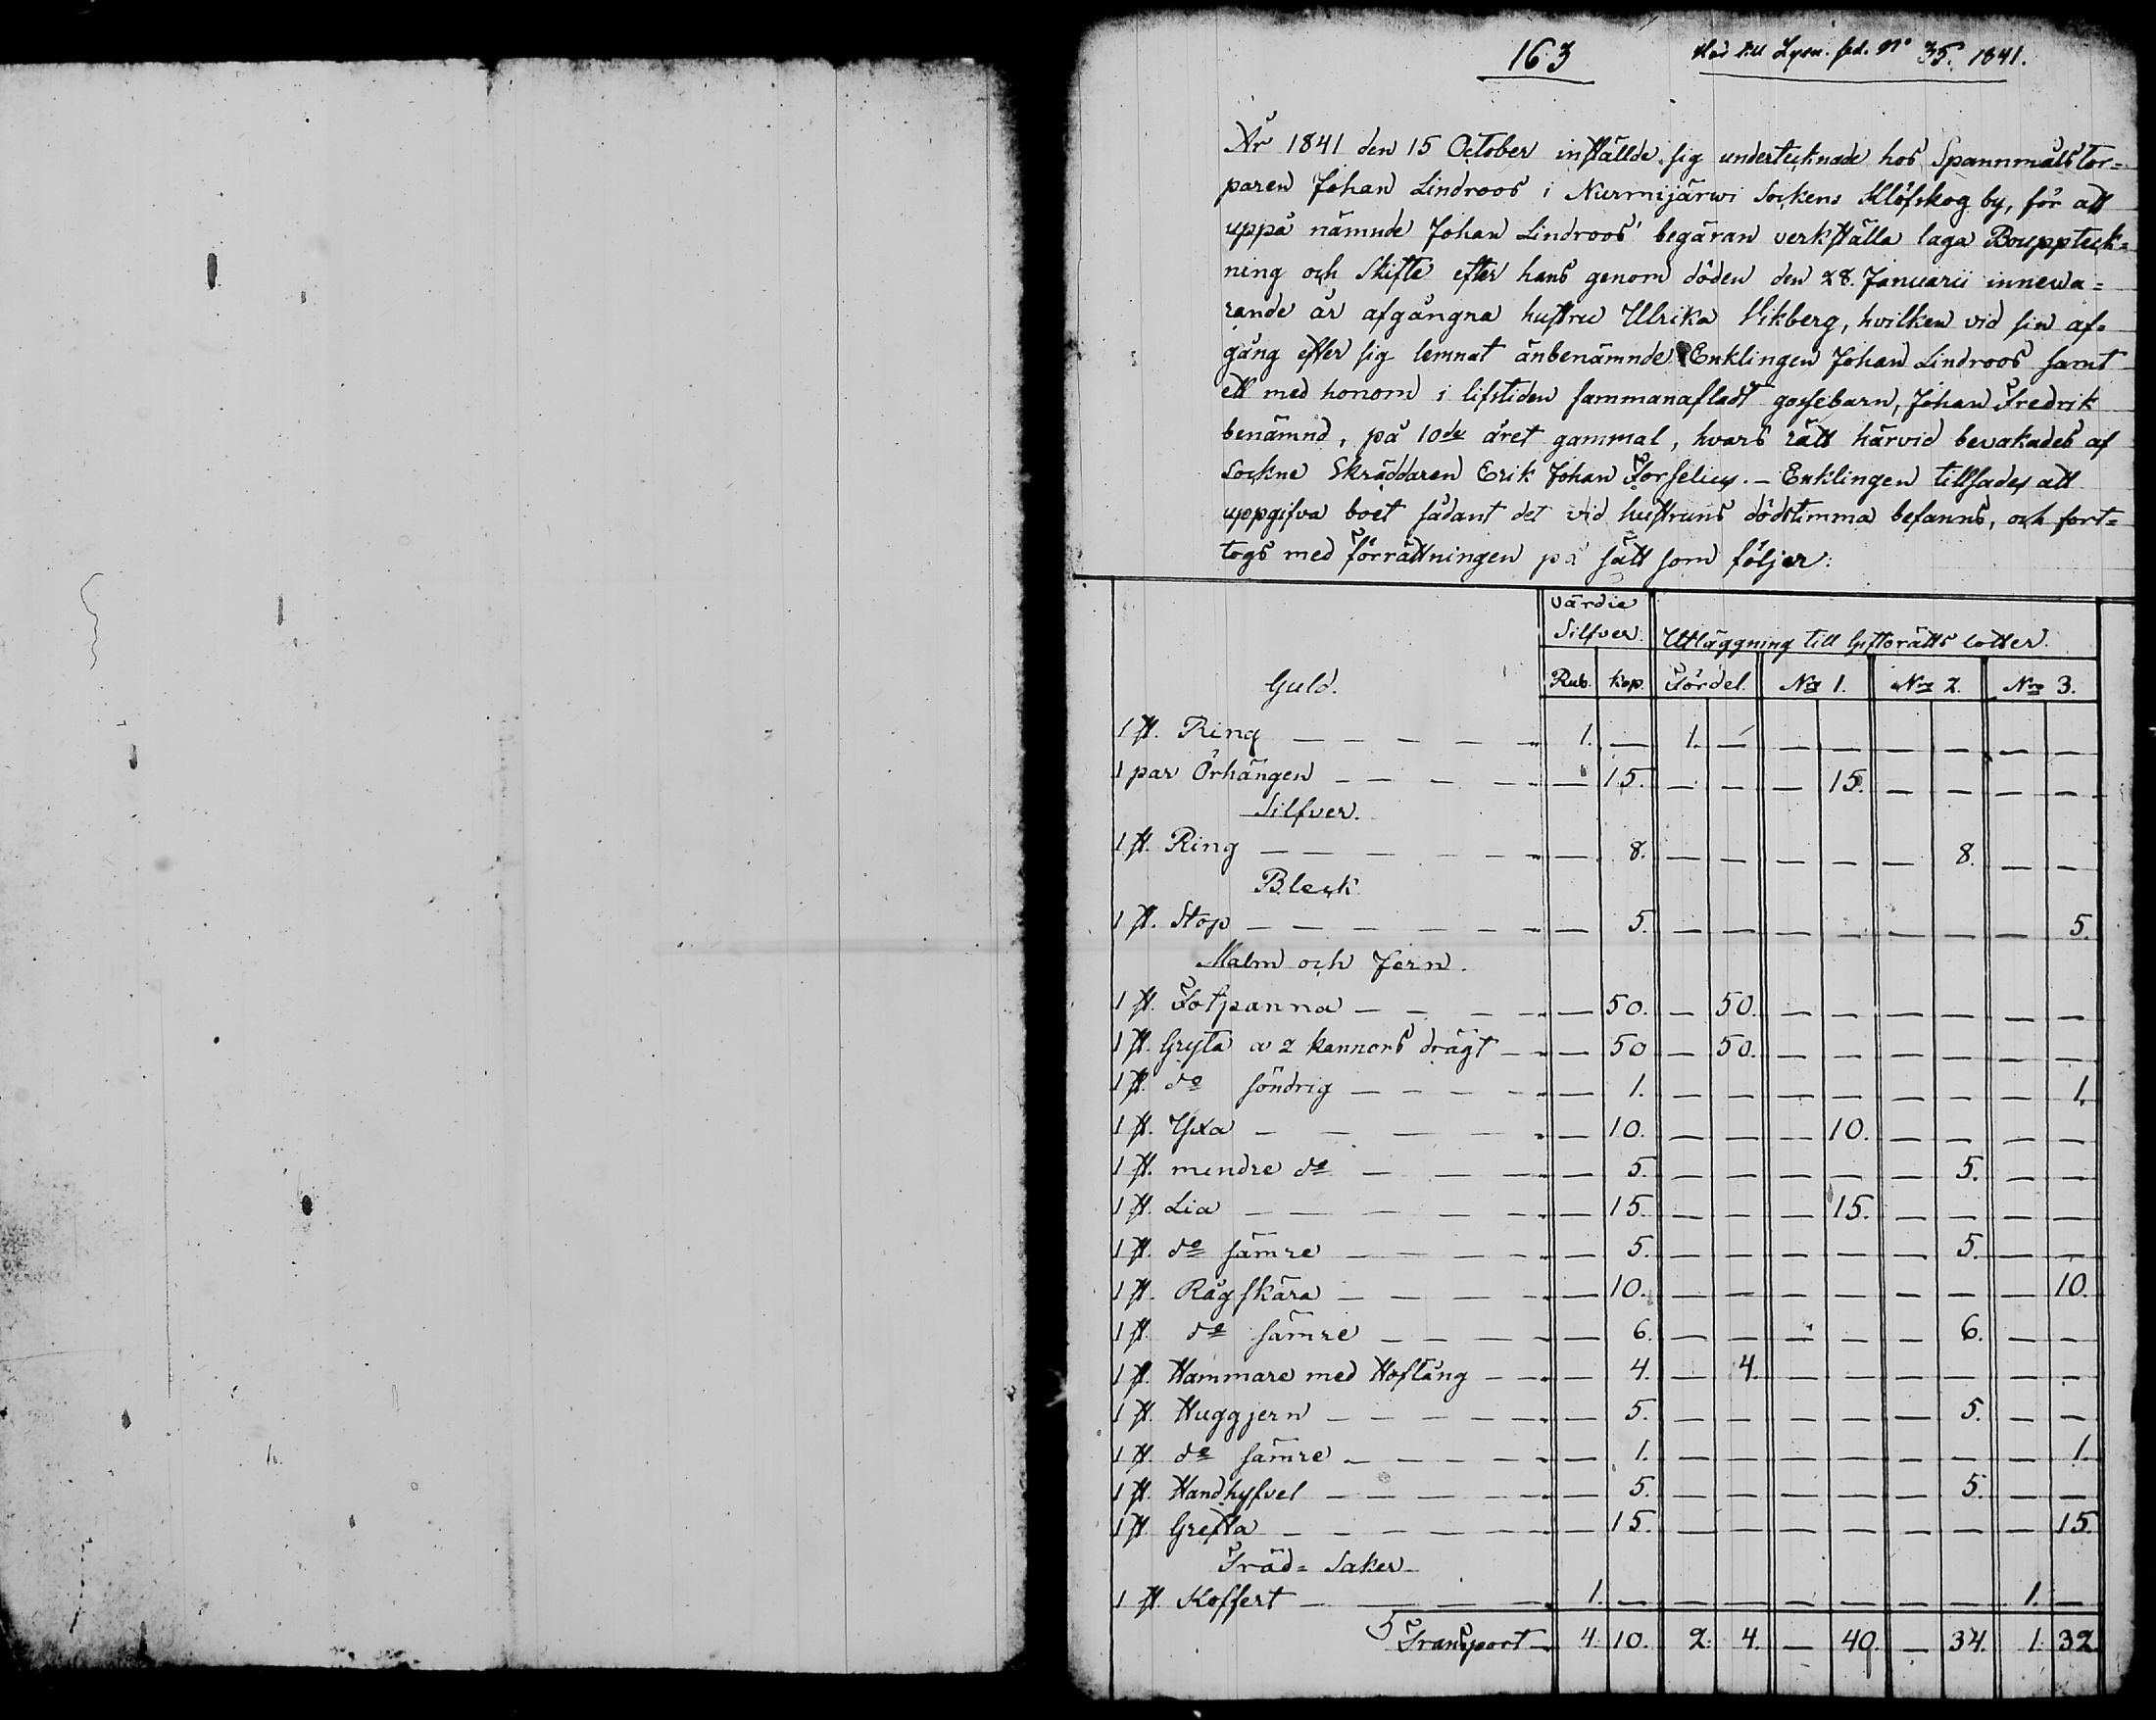 163
Hör till Lysn. päd. No 35. 1841.
År 1841 den 15 October inställde sig undertecknade hos Spannmålstor=
paren Johan Lindroos i Nurmijärwi Sockens Klöfskog by, för att
uppå nämnde Johan Lindroos' begäran verkställa laga Bouppteck=
ning och Skifte efter hans genom döden den 28. Januarii innewa=
rande år afgångna hustru Ulrika Vikberg, hvilken vid sin af=
gång efter sig lemnat ånbenämnde Enklingen Johan Lindroos samt
ett med honom i lifstiden sammanafladt gossebarn, Johan Fredrik
benämnd, på 10de året gammal, hvars rätt härvid bevakades af
Sockne Skräddaren Erik Johan Forselius. – Enklingen tillsades att
uppgifva boet sådant det vid hustruns dödstimma befanns, och fort=
togs med förrättningen på sätt som följer:
Värdie
Silfver. Uttläggning till Giftorätts lotter.
Guld. Rub. kop. Fördel. No 1. No 2. No 3.
1 st. Ring — — — — — 1. — 1. — — — — — — —
1 par Örhängen — — — — — 15. — — — 15. — — — —
Silfver.
1 st. Ring — — — — — — 8. — — — — — 8. — —
Bleck
1 st. Stop — — — — — — 5. — — — — — — — 5.
Malm och Jern.
1 st. Fotpanna — — — — — 50. — 50. — — — — — —
1 st. Gryta a 2 kannors drägt — — 50 — 50. — — — — — —
1 st. do söndrig — — — — — 1. — — — — — — — 1.
1 st. Yxa — — — — — 10. — — — 10. — — — —
1 st. mindre do — — — — 5. — — — — — 5. — —
1 st. Lia — — — — — — 15. — — — 15. — — — —
1 st. do sämre — — — — — 5. — — — — — 5. — —
1 st. Rågskära — — — — — 10. — — — — — — — 10.
1 st. do sämre — — — — 6. — — — — — 6. — —
1 st. Hammare med Hoftång — — — 4. — 4. — — — — — —
1 st. Huggjern — — — — — — 5. — — — — — 5. — —
1 st. do sämre — — — — — 1. — — — — — — — 1.
1 st. Handhyfvel — — — — — — 5. — — — — — 5. — —
1 st Grefta — — — — — — 15. — — — — — — — 15.
Träd= Saker
1 st. Koffert — — — — 1. — — — — — — — 1. —
Transport 4. 10. 2. 4. — 40. — 34. 1. 32